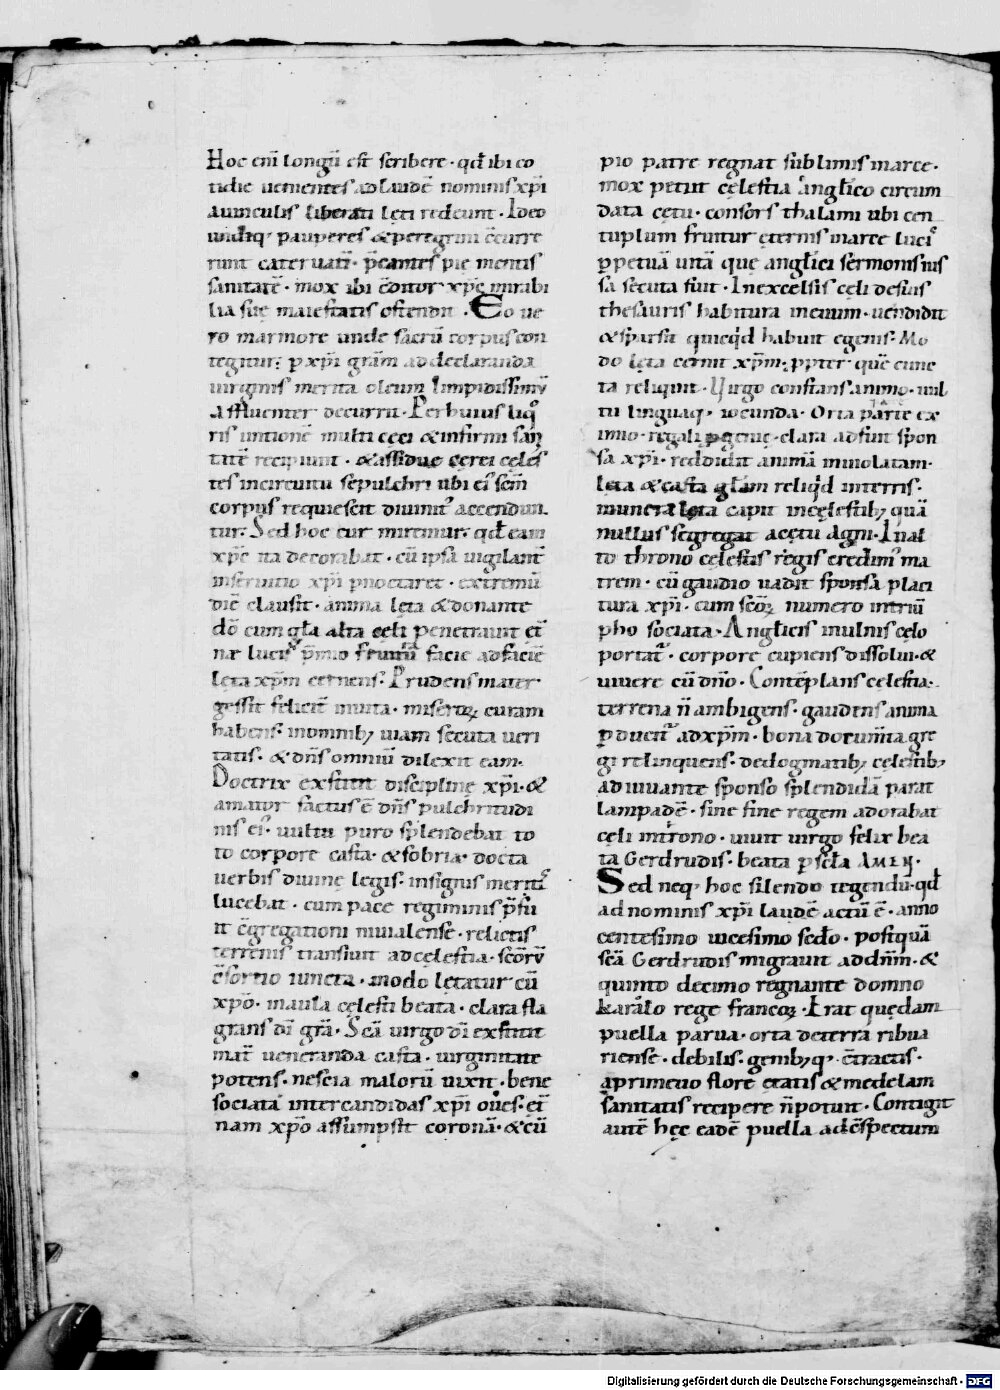 Hoc eni̅ longu̅ est scribere · qd̅ ibi co
tidie uenientes ad laude̅ nominis xp̅i
a uinculis liberati leti redeunt · Ideo
undiq; pauperes & peregrini c̅curre
runt cateruati̅ · p̅cantes pie mentis
sanitate̅ · mox ibi c̅ditor xp̅c mirabi
lia suę maiestatis ostendit · Eo ue
ro marmore unde sacru̅ corpus con
tegitur; p xp̅i gra̅m ad declaranda
uirginis merita oleum limpidissimu̅
affluenter decurrit · Per huius liq̊
ris untione̅ multi cęci & infirmi sani
tate̅ recipiunt · & assidue cerei cęles
tes in circuitu sepulchri ubi ei' sc̅m
corpus requiescit diuinit' accendun
tur · Sed hoc cur miremur · qd̅ eam
xp̅c ita decorabat · cu̅ ipsa uigilant̅
in seruitio xp̅i p̅noctaret · extremu̅
die̅ clausit · anima lęta & donante
dō cum gl̅a alta cęli penetrauit ęt̅
nę lucis p̅mio fruitur facie ad facie̅
lęta xp̅m cernens · Prudens mater
gessit felicit̅ inuita · miseroꝝ curam
habens · in omnib; uiam secuta ueri
tatis · & dn̅s omniu̅ dilexit eam ·
Doctrix exstitit discipline xp̅i · &
amatur factus e̅ dn̅s pulchritudi
nis ei' · uultu puro splendebat to
to corpore casta · & sobria · docta
uerbis diuinę legis · insignis merit'
lucebat · cum pace regiminis p̅fu
it c̅gregationi niuialense · relictis
terrenis transiuit ad cęlestia · sc̅oru̅
c̅sortio iuncta · modo lętatur cu̅
xp̅o · in aula cęlesti beata · clara fla
grans di̅ gra̅ · Sc̅a uirgo di̅ exstitit
mat̅ ueneranda casta · uirginitate
potens · nescia maloru̅ uixit · bene
sociata inter candidas xp̅i oues · ęt̅
nam xp̅o assumpsit corona̅ · & cu̅
pio patre regnat sublimis marce ·
mox petut cęlestia anglico circum
data cętu · consors thalami ubi cen
tuplum fruitur ęternis marce luci'
p̲petua̅ uita̅ quę anglici sermonis ius
sa secuta fuit · In excelsis cęli de suis
thesauris habitura in euum · uendidit
& sparsit quicq̇d habuit egenis · Mo
do lęta cernit xp̅m · p̲pter que̅ cunc
ta reliquit · Uirgo constans animo · uul
tu linguaq; iocunda · Orta patre ex
imio · regali p̲genie · clara adsunt spon
sa xp̅i · reddidit anima̅ inmolatam ·
lęta & casta gl̅am reliq̇d in terris ·
munera lęta capit in cęlestib; qua̅
nullus segregat a cętu Agni · In al
to throno cęlestis regis credim' ma
trem · cu̅ gaudio uadit sponsa placi
tura xp̅i · cum sc̅oꝝ numero in triu̅
pho sociata · Anglicis in ulnis cęlo
portat̅ · corpore cupiens dissolui · &
uiuere cu̅ dn̅o · Conte̅plans cęlestia ·
terrena n̅ ambigens · gaudens anima
p̲ducit̅ ad xp̅m · bona documta gre
gi relinquens · de dogmatib; cęlestib;
adiuuante sponso splendida̅ parat
lampade̅ · sine fine regem adorabat
cęli in trono · uiuit uirgo felix bea
ta Gerdrudis · beata p̲ scl̅a AMEN ·
Sed neq; hoc silendo tegendu̅ · qd̅
ad nominis xp̅i laude̅ actu̅ e̅ · anno
centesimo uicesimo sc̅do · postqua̅
sc̅a Gerdrudis migrauit ad dn̅m · &
quinto decimo regnante domno
karalo rege francoꝝ · Erat quędam
puella parua · orta de terra ribua
riense · debilis · genib;q; c̅tractis ·
a primeuo flore ętatis & medelam
sanitatis recipere n̅ potuit · Contigit
aute̅ hęc eade̅ puella ad c̅spectum
Digitalisierung gefördert durch die Deutsche Forschungsgemeinschaft - DFG